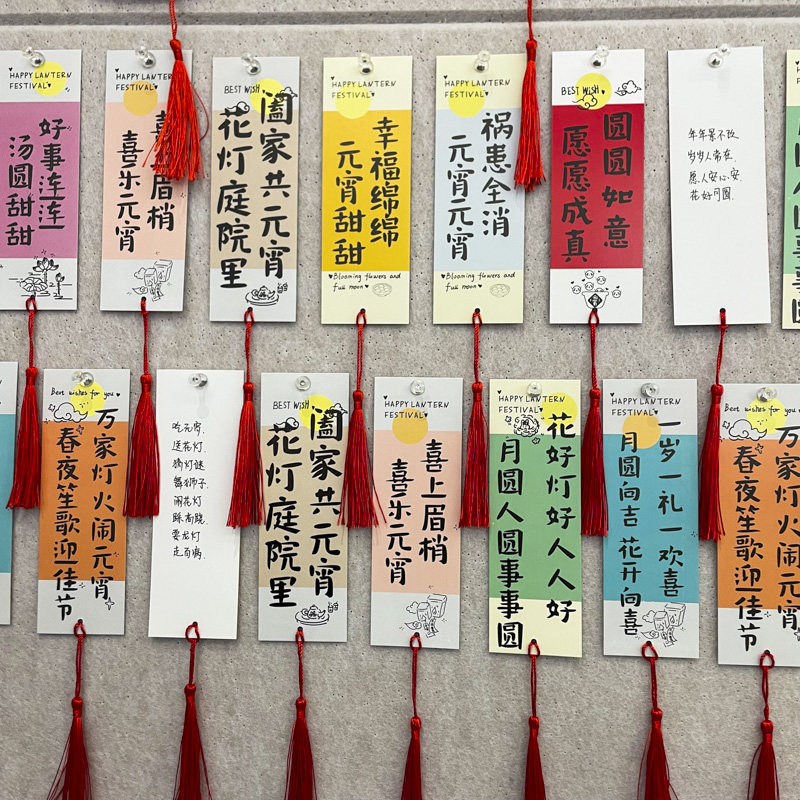 HAPPY LANTERN
FESTIVAL♥
好事连连
汤圆甜甜
HAPPY LANTERN
FESTIVAL
眉梢
喜乐元宵
BEST WISH
阖家共元宵
花灯庭院里
HAPPY LANTERN
FESTIVAL♥
幸福绵绵
元宵甜甜
Blooming flowers and
full moon
HAPPY LANTERN
FESTIVAL♥
祸患全消
元宵元宵
Blooming flowers and
full moon
BEST WISH
圆圆如意
愿愿成真
年年景不改
岁岁人常在
愿人安心安
花好月圆
Best wishes for you
万家灯火闹元宵
春夜笙歌迎佳节
吃元宵
送花灯
猜灯谜
舞狮子
闹花灯
踩高跷
耍龙灯
走百病
BEST WISH
阖家共元宵
花灯庭院里
HAPPY LANTERN
FESTIVAL♥
喜上眉梢
喜乐元宵
HAPPY LANTERN
FESTIVAL
花好灯好人人好
月圆人圆事事圆
HAPPY LANTERN
FESTIVAL♥
一岁一礼一欢喜
月圆向吉 花开向喜
Best wishes for you
万家灯火闹元宵
春夜笙歌迎佳节